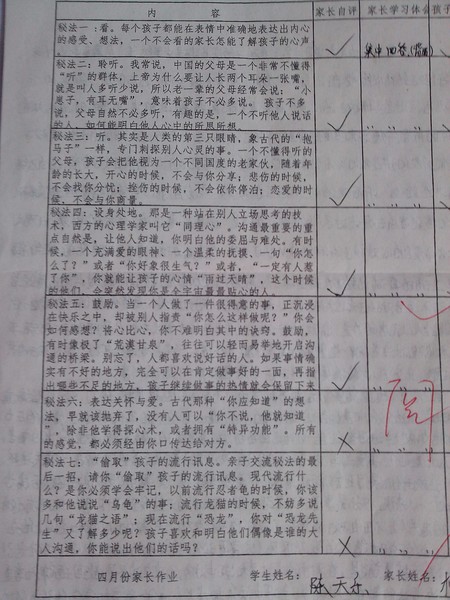 内 容 家长自评 家长学习体会 孩子
秘法一：看。每个孩子都能在表情中准确地表达出内心
的感受、想法，一个不会看的家长怎能了解孩子的心声
。
秘法二：聆听。我常说，中国的父母是一个非常不懂得
“听”的群体，上帝为什么要让人长两个耳朵一张嘴，
就是叫人多听少说，所以老一辈的父母经常会说：“小
崽子，有耳无嘴”，意味着孩子不必多说。 孩子不多
说，父母自然不必多听，有趣的是，一个不听他人说话
的人，如何能明白他人心中的所思所想。
秘法三：听。其实是人类的第三只眼睛，象古代的“抱
马子”一样，专门刺探别人心灵的事。一个不懂得听的
父母，孩子会把他视为一个不同国度的老家伙，随着年
龄的长大，开心的时候，不会与你分享；悲伤的时候，
不会找你分忧；挫伤的时候，不会依你停泊；恋爱的时
候，不会与你商量。
秘法四：设身处地。那是一种站在别人立场思考的技
术，西方的心理学家叫它“同理心”。沟通最重要的重
点自然是，让他人知道，你明白他的委屈与难处。有时
候，一个充满爱的眼神、一个温柔的抚摸、一句“你怎
么了？”或者“你好象很生气？”或者，“一定有人惹
了你”，你就能让孩子的心情“雨过天晴”，这个时候
的他们，会突然发现你是全宇宙最最贴心的人。
秘法五：鼓励。当一个人做了一件很得意的事，正沉浸
在快乐之中，却被别人指责“你怎么这样做呢？”你会
如何感想？将心比心，你不难明白其中的诀窍。鼓励，
有时像极了“荒漠甘泉”，往往可以轻而易举地开启沟
通的桥梁。别忘了，人都喜欢说好话的人。如果事情确
实有不好的地方，完全可以在肯定做事好的一面，再指
出哪些不足的地方，孩子继续做事的热情就会保留下来
秘法六：表达关怀与爱。古代那种“你应知道”的想
法，早就该抛弃了，没有人可以“你不说，他就知道
”，除非他学得探心术，或者拥有“特异功能”。所有
的感觉，都必须经由你口传达给对方。
秘法七：“偷取”孩子的流行讯息。亲子交流秘法的最
后一招，请你“偷取”孩子的流行讯息。现代流行什
么？是你必须学会牢记，以前流行忍者龟的时候，你该
多和他说说“乌龟”的事；流行龙猫的时候，不妨多说
几句“龙猫之语”；现在流行“恐龙”，你对“恐龙先
生”又了解多少呢？孩子喜欢和明白他们偶像是谁的大
人沟通，你能说出他们的话吗？
四月份家长作业 学生姓名： 陈天乐 家长姓名：